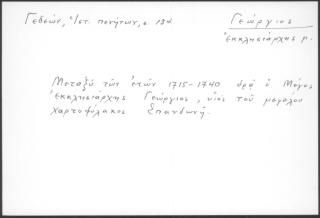 Γεδεών, Ἱστ. πενήτων, σ. 134.
Γεώργιος
ἐκκλησιάρχης μ.
Μεταξὺ τῶν ἐτῶν 1715-1740 δρᾷ ὁ Μέγας
ἐκκλησιάρχης Γεώργιος, υἱὸς τοῦ μεγάλου
χαρτοφύλακος Σπανδωνῆ.